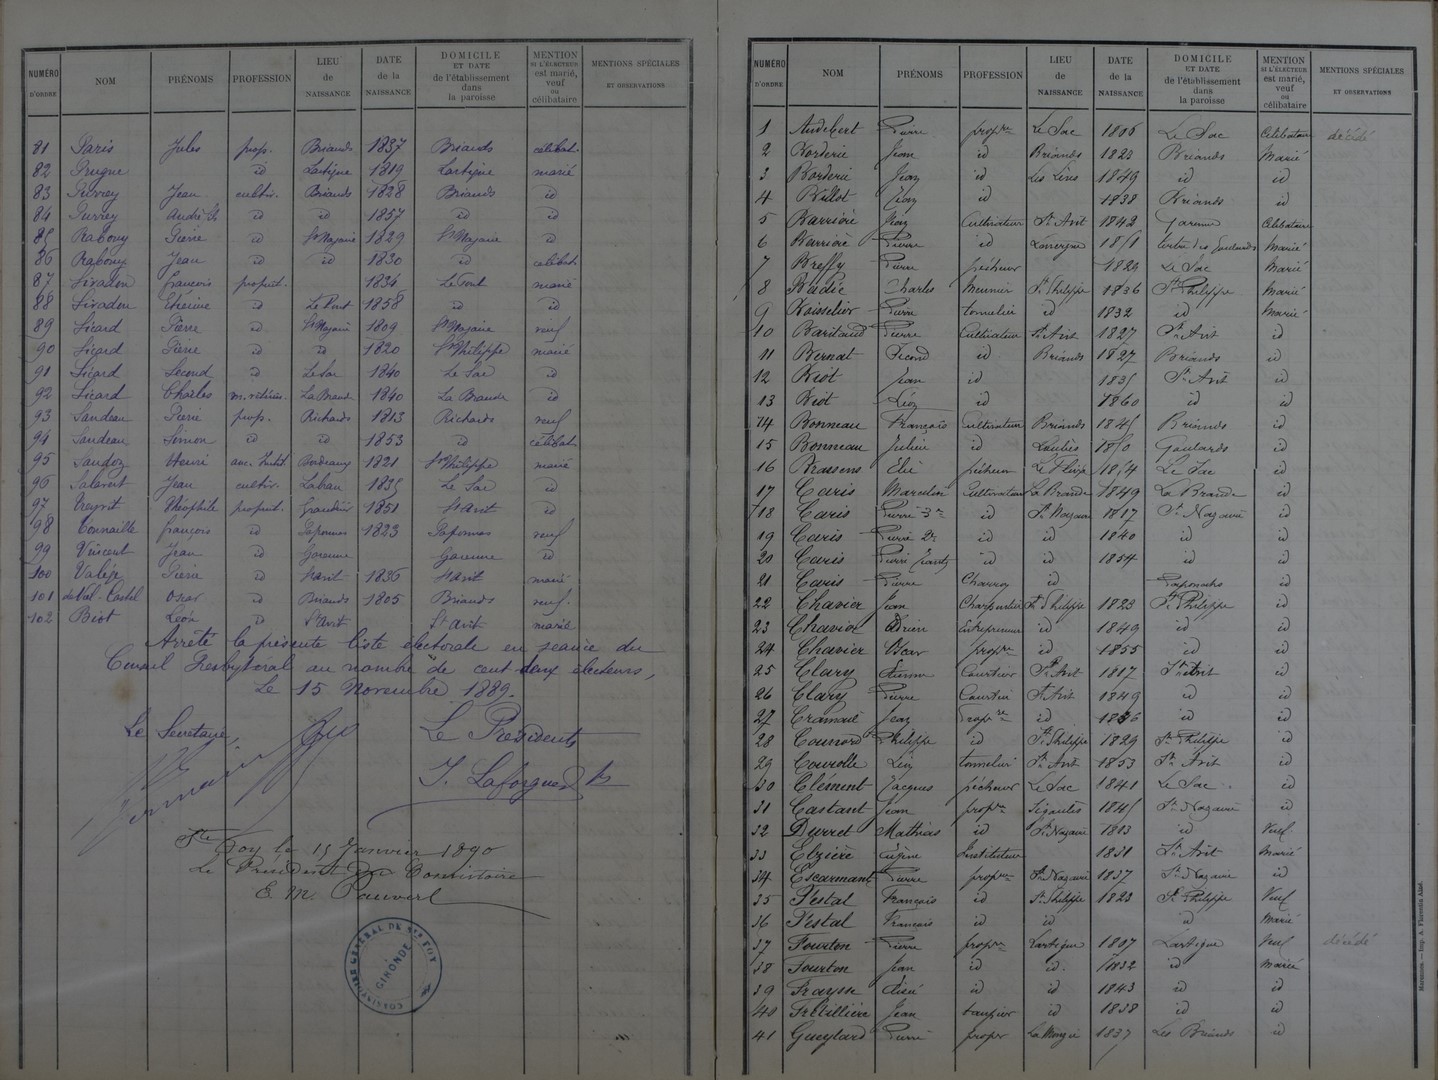 NUMÉRO D'ORDRE NOM PRÉNOMS PROFESSION LIEU de NAISSANCE DATE de la NAISSANCE DOMICILE ET DATE de l'établissement dans la paroisse MENTION SI L'ÉLECTEUR est marié, veuf ou célibataire MENTIONS SPÉCIALES ET OBSERVATIONS
81 Paris Jules prop. Briands 1837 Briands célibat.
82 id Lartigue 1819 Lartigue marié
83 Jean cultiv. Briands 1828 Briands id
84 André id id 1857 id id
85 Rabouy Pierre id St Nazaire 1829 St Nazaire id
86 Rabouy Jean id id 1830 id célibat.
87 Siradon François propriet. 1836 Le Pont marié
88 Siradon Etienne id Le Pont 1858 id id
89 Sicard Pierre id St Nazaire 1809 St Nazaire veuf
90 Sicard Pierre id id 1820 St Philippe marié
91 Sicard Second id Le Sac 1840 Le Sac id
92 Sicard Charles La Brande 1840 La Brande id
93 Sandeau Pierre prop. Richards 1813 Richards veuf
94 Sandeau Simon id id 1853 id célibat.
95 Sandoz Henri anc. Instit. Bordeaux 1821 St Philippe marié
96 Jean cultiv. 1835 Le Sac id
97 Théophile propriet. 1851 St Avit id
98 François id 1823 veuf
99 Vincent Jean id Garenne Garenne id
100 Pierre id St Avit 1836 St Avit marié
101 de Viel-Castel Oscar id Briands 1805 Briands veuf.
102 Biot Léon id St Avit St Avit marié
Arrêté la présente liste électorale en séance du
Conseil Presbytéral au nombre de cent deux électeurs,
Le 15 Novembre 1889.
Le Secrétaire, Le Président
J. Laforgue
Ste Foy le 15 Janvier 1890
Le Président du Consistoire
E. M. Pauvert
CONSISTOIRE GÉNÉRAL DE STE FOY GIRONDE
NUMÉRO D'ORDRE NOM PRÉNOMS PROFESSION LIEU de NAISSANCE DATE de la NAISSANCE DOMICILE ET DATE de l'établissement dans la paroisse MENTION SI L'ÉLECTEUR est marié, veuf ou célibataire MENTIONS SPÉCIALES ET OBSERVATIONS
1 Audebert Pierre propre Le Sac 1806 Le Sac Célibataire décédé
2 Borderie Jean id Briands 1823 Briands Marié
3 Borderie Jean id Les Lins 1849 id id
4 Billot Jean id 1838 Briands id
5 Barrière Jean Cultivateur St Avit 1842 Garenne Célibataire
6 Barrière Pierre id 1851 Marié
7 Pierre pêcheur 1829 Le Sac Marié
8 Charles Meunier St Philippe 1836 St Philippe Marié
9 Boisselier Pierre tonnelier id 1832 id Marié
10 Baritaud Pierre Cultivateur St Avit 1827 St Avit id
11 Bernat Second id Briands 1827 Briands id
12 Biot Jean id 1835 St Avit id
13 Biot Léon id 1860 id id
14 Bonneau François Cultivateur Briands 1845 Briands id
15 Bonneau id 1850 Goulards id
16 Brassens Elie pêcheur 1854 Le Sac id
17 Caris Marcelin Cultivateur La Brande 1849 La Brande id
18 Caris Pierre id St Nazaire 1817 St Nazaire id
19 Caris Pierre 2e id id 1840 id id
20 Caris Pierre id id 1854 id id
21 Caris Pierre Charron id id
22 Chavier Jean Charpentier St Philippe 1823 St Philippe id
23 Chavier Adrien Entrepreneur id 1849 id id
24 Chavier Oscar propre id 1855 id id
25 Clary Etienne Courtier St Avit 1817 St Avit id
26 Clary Pierre Courtier St Avit 1849 id id
27 Jean Propre id 1836 id id
28 Philippe id St Philippe 1829 St Philippe id
29 Léon tonnelier St Avit 1853 St Avit id
30 Clément Jacques pêcheur Le Sac 1841 Le Sac id
31 Castant Jean propre 1845 St Nazaire id
32 Durret Mathias id St Nazaire 1813 id Veuf
33 Elzière Eugène Instituteur 1831 St Avit Marié
34 Escarmant Pierre propre St Nazaire 1837 St Nazaire id
35 Festal François id St Philippe 1823 St Philippe Veuf
36 Festal François id id id Marié
37 Fourton Pierre propre Lartigue 1807 Lartigue Veuf décédé
38 Fourton Jean id id. 1832 id Marié
39 id id 1843 id id
40 Jean id 1838 id id
41 Gueylard Pierre proper 1837 Les Briands id
Marennes. — Imp. A. Florentin Aîné.